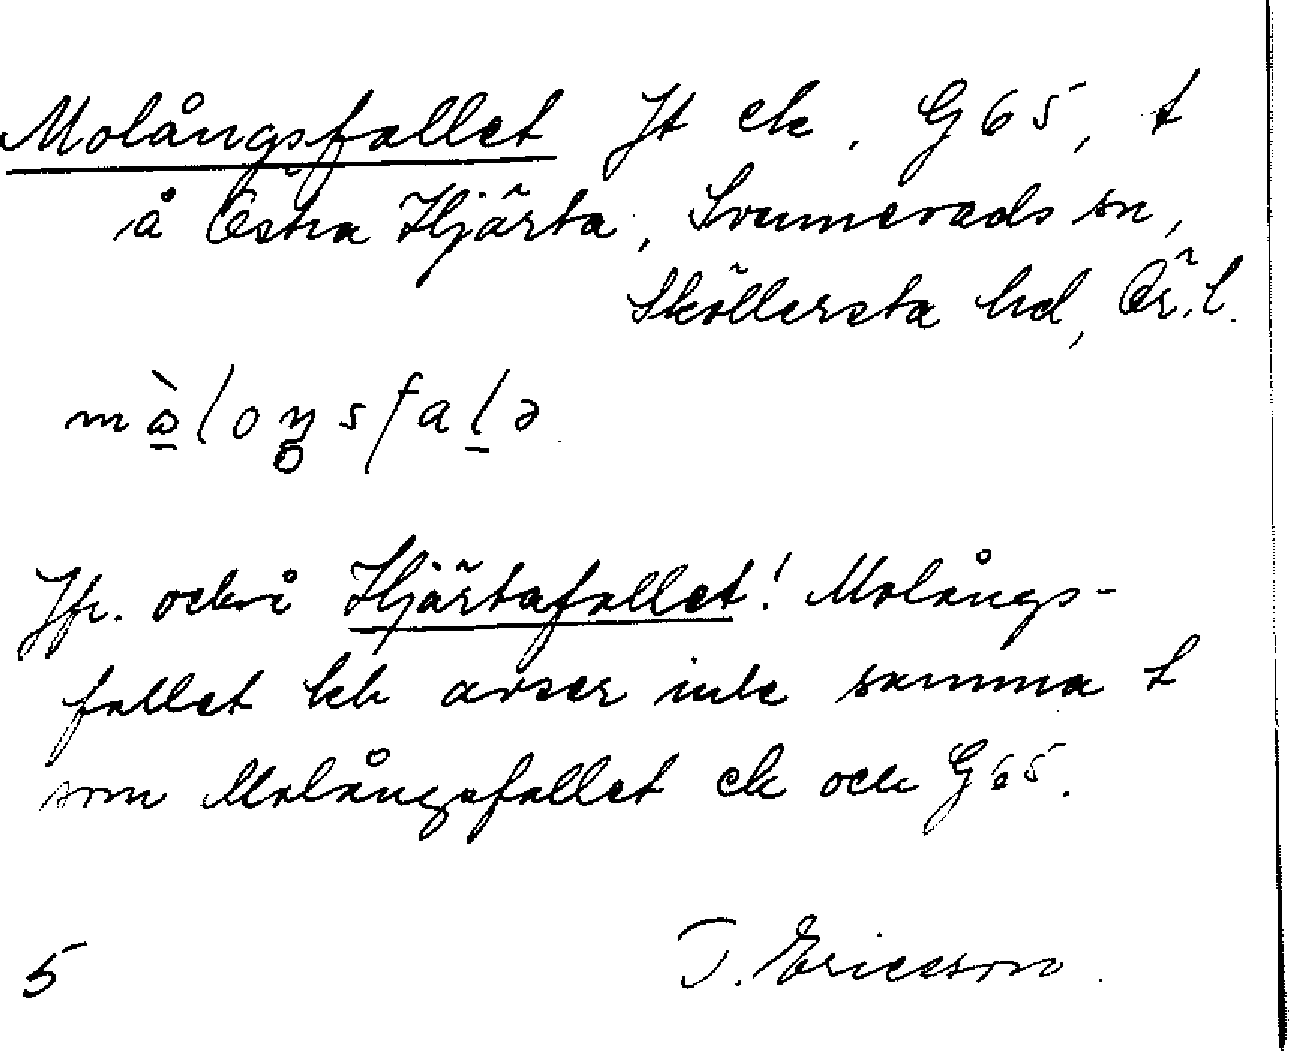 Molångsfallet Jt ek. G65, t
å Östra Hjärta, Svennevads sn,
Sköllersta hd, Ör. l.
Jfr. också Hjärtafallet! Molångs-
fallet kk avser inte samma t
som Molångsfallet ek och G65.
5 T. Ericsson.